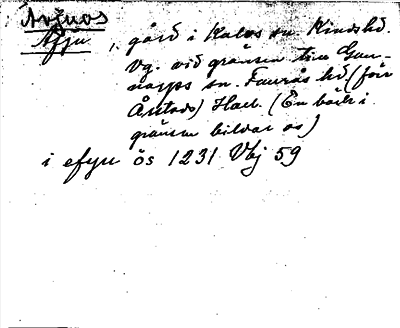 Avžnos
Æfju, gård i Kalvs sn Kinds hd.
Vg. vid gränsen till Gun-
narps sn. Faurås hd. (förr
Årstads) Hall. (En bäck i
gränsen bildar os)
i efyu ös 1231 Vbj 59